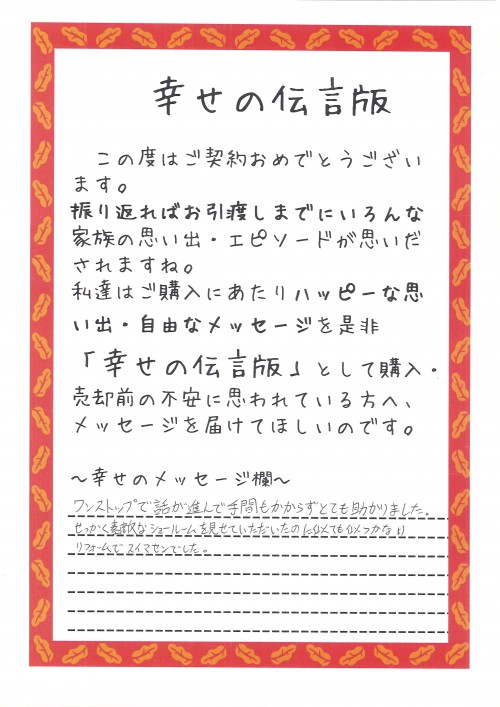 幸せの伝言版
この度はご契約おめでとうござい
ます。
振り返ればお引渡しまでにいろんな
家族の思い出・エピソードが思いだ
されますね。
私達はご購入にあたりハッピーな思
い出・自由なメッセージを是非
「幸せの伝言版」として購入・
売却前の不安に思われている方へ、
メッセージを届けてほしいのです。
～幸せのメッセージ欄～
ワンストップで話が進んで手間もかからずとても助かりました。
せっかく素敵なショールームを見せていただいたのに
リフォームでスイマセンでした。